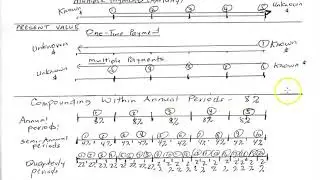 Multiple Payments (Annuity)
Known $ Unknown $
PRESENT VALUE
One-Time Payment
Unknown $ 1 Known $
Multiple Payments
Unknown $ Known $
Compounding Within Annual Periods - 8%
Annual periods: 1 2 3 4 5
8% 8% 8% 8% 8%
Semi-Annual periods 1 2 3 4 5 6 7 8 9 10
4% 4% 4% 4% 4% 4% 4% 4% 4% 4%
Quarterly periods
2% 2% 2% 2% 2% 2% 2% 2% 2% 2% 2% 2% 2% 2% 2% 2% 2% 2% 2% 2%